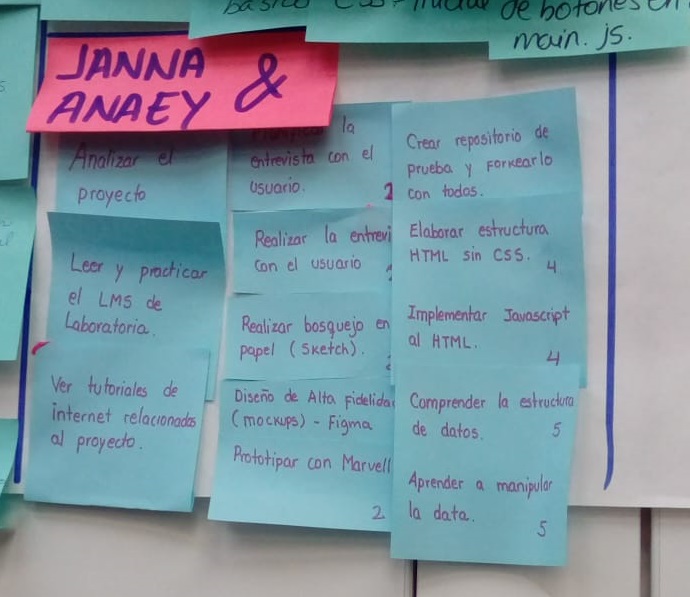 de botones en
main.js.
JANNA &
ANAEY
Analizar el
proyecto
Leer y practicar
el LMS de
Laboratoria.
Ver tutoriales de
internet relacionados
al proyecto.
la
entrevista con el
usuario.
2
Realizar la entrevi
con el usuario
Realizar bosquejo en
papel (Sketch).
Diseño de Alta Fidelida
(mockups) - Figma
Prototipar con Marvell
2
Crear repositorio de
prueba y forkearlo
con todos.
Elaborar estructura
HTML sin CSS.
4
Implementar Javascript
al HTML.
4
Comprender la estructura
de datos.
5
Aprender a manipular
la data.
5